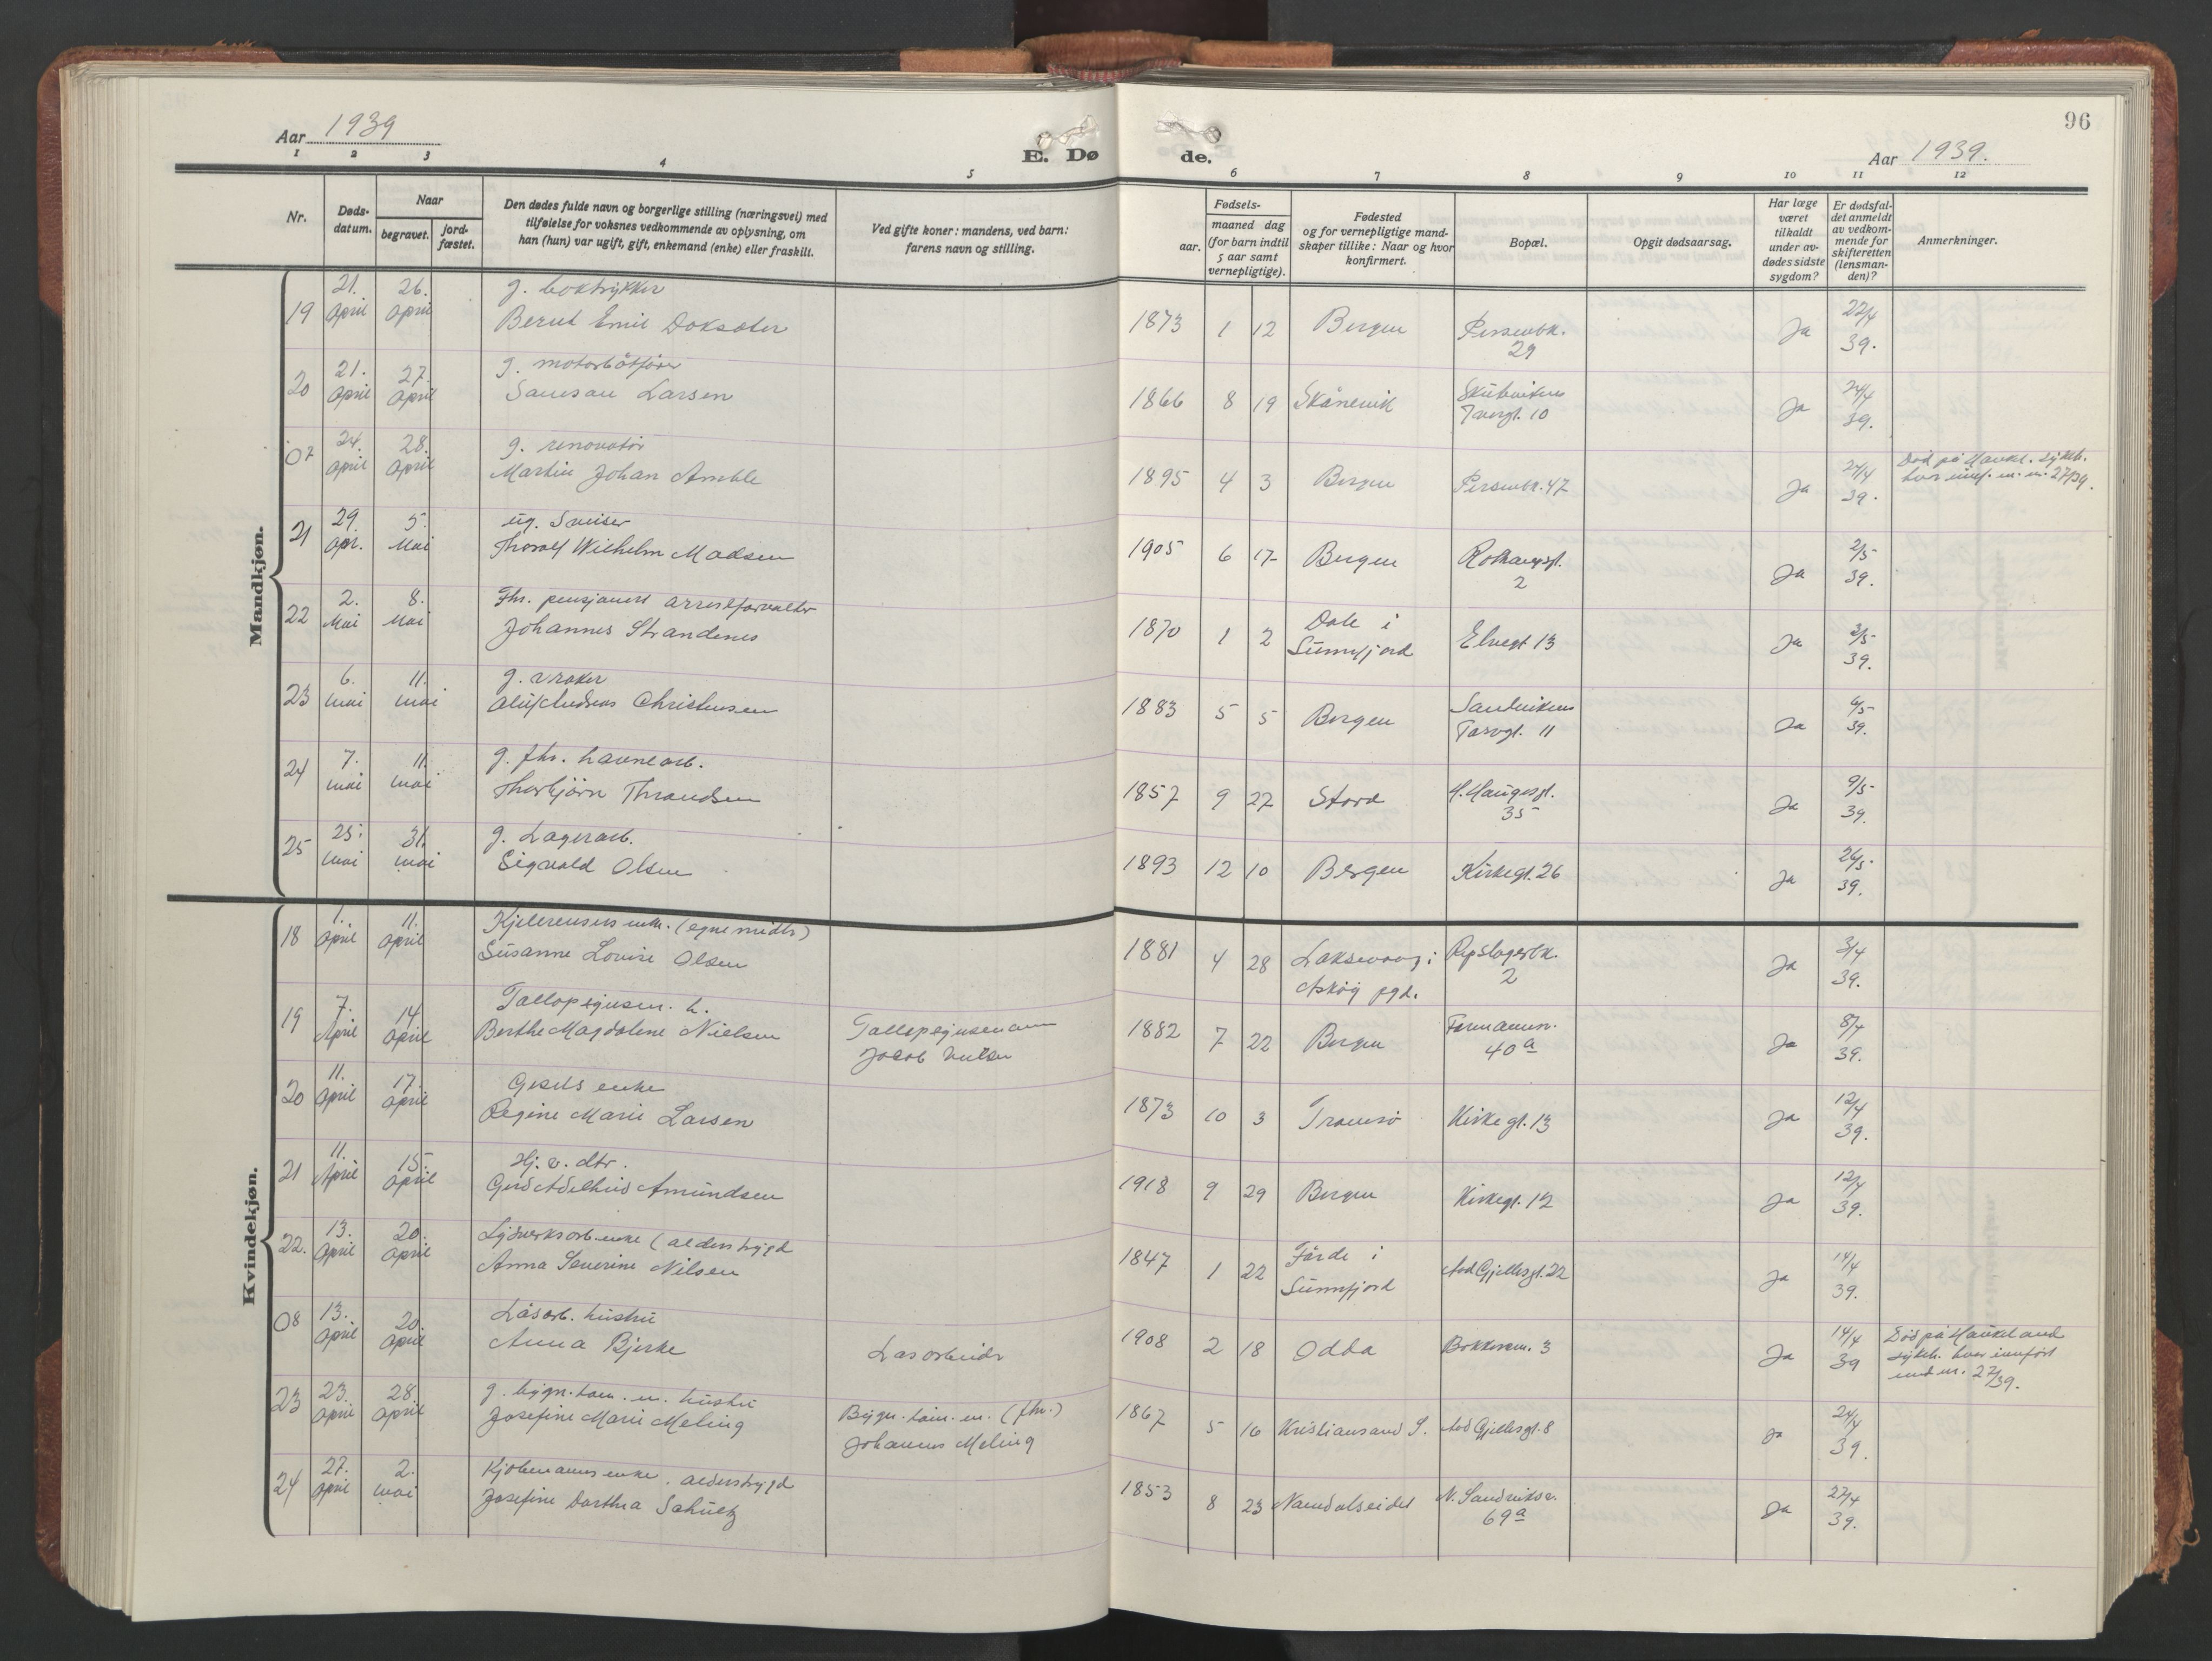 96
Aar 1939
E. Dø
de.
Aar 1939.
1 2 3 4 5 6 7 8 9 10 11 12
Nr.
Døds-
datum.
Naar
begravet.
jord-
fæstet.
Den dødes fulde navn og borgerlige stilling (næringsvei) med
tilføielse for voksnes vedkommende av oplysning, om
han (hun) var ugift, gift, enkemand (enke) eller fraskilt.
Ved gifte koner: mandens, ved barn:
farens navn og stilling.
Fødsels-
aar.
maaned dag
(for barn indtil
5 aar samt
vernepligtige).
Fødested
og for vernepligtige mand-
skaper tillike: Naar og hvor
konfirmert.
Bopæl.
Opgit dødsaarsag.
Har læge
været
tilkaldt
under av-
dødes sidste
sygdom?
Er dødsfal-
det anmeldt
av vedkom-
mende for
skifteretten
(lensman-
den)?
Anmerkninger.
Mandkjøn.
21. 26. g. boktrykker
19 April April Bernt Emil Doksater 1873 1 12 Bergen Persenbk. Ja 22/4
29 39.
21. 27. g. motorbåtfører
20 April April Samson Larsen 1866 8 19 Skånevik Ja 24/4
Torvgt. 10 39.
24. 28. g. renovatør
07 April April Martin Johan Amble 1895 4 3 Bergen Persenbk. 47 Ja 24/4 Død på Haukl. sykeh.
39. hvor innf. m. nr. 27/39.
29. 5. ug. Sveiser
21 Apr. Mai Thoralf Wilhelm Madsen 1905 6 17 Bergen Rothaugsgt. Ja 2/5
2 39.
2. 8. Fhv. pensjonert arrestforvalter
22 Mai Mai Johannes Strandenes 1870 1 2 Dale i Elvegt 13 Ja 3/5
Sunnfjord 39.
6. 11. g. vraker
23 mai mai Oluf Andreas Christensen 1883 5 5 Bergen Sandvikens Ja 6/5
Torvgt. 11 39.
7. 11. g. fhv. havnearb.
24 mai mai Thorbjörn Thrandsen 1857 9 27 Stord H. Haugesgt. Ja 9/5
35 39.
25. 31. g. Lagerarb.
25 mai mai Sigvald Olsen 1893 12 10 Bergen Kirkegt. 26 Ja 26/5
39.
Kvindekjøn.
1. 11. Kjelerensers enke. (egne midler)
18 April April Susanne Lovise Olsen 1881 4 28 Laksevaag i Repslagerbk. Ja 3/4
Askøy pgd. 2 39.
7. 14. h.
19 April April Berthe Magdalene Nielsen 1882 7 22 Bergen Formannsv. Ja 8/4
Jacob 40a 39.
11. 17. enke
20 April April Regine Marie Larsen 1873 10 3 Tromsö Kirkegt. 13 Ja 12/4
39.
11. 15. Hj. v. dtr.
21 April April Gerd Adelheid Amundsen 1918 9 29 Bergen Kirkegt. 12 Ja 12/4
39.
13. 20. Lysverksarb. enke (alderstrygd
22. April April Anna Severine Nilsen 1847 1 22 Förde i Aad Gjellesgt. 22 Ja 14/4
Sunnfjord 39.
13. 20. Låsarb. hustru
08 April April Anna Bjerke Låsarbeider 1908 2 18 Odda Bakkesm. 3 Ja 14/4 Död på Haukeland
39 sykeh. hvor innført
und nr. 27/39.
23. 28. g. bygn. hustru
23 April April Josefine Marie Meling Bygn. (fhv.) 1867 5 16 Kristiansand S. Aad Gjellesgt. 8 Ja 24/4
Johannes Meling 39.
27. 2. Kjöbmanns enke. alderstrygd
24 April mai Josefine Dorthea Schultz 1853 8 23 Namdalseidet N. Sandviksv. Ja 27/4
69a 39.